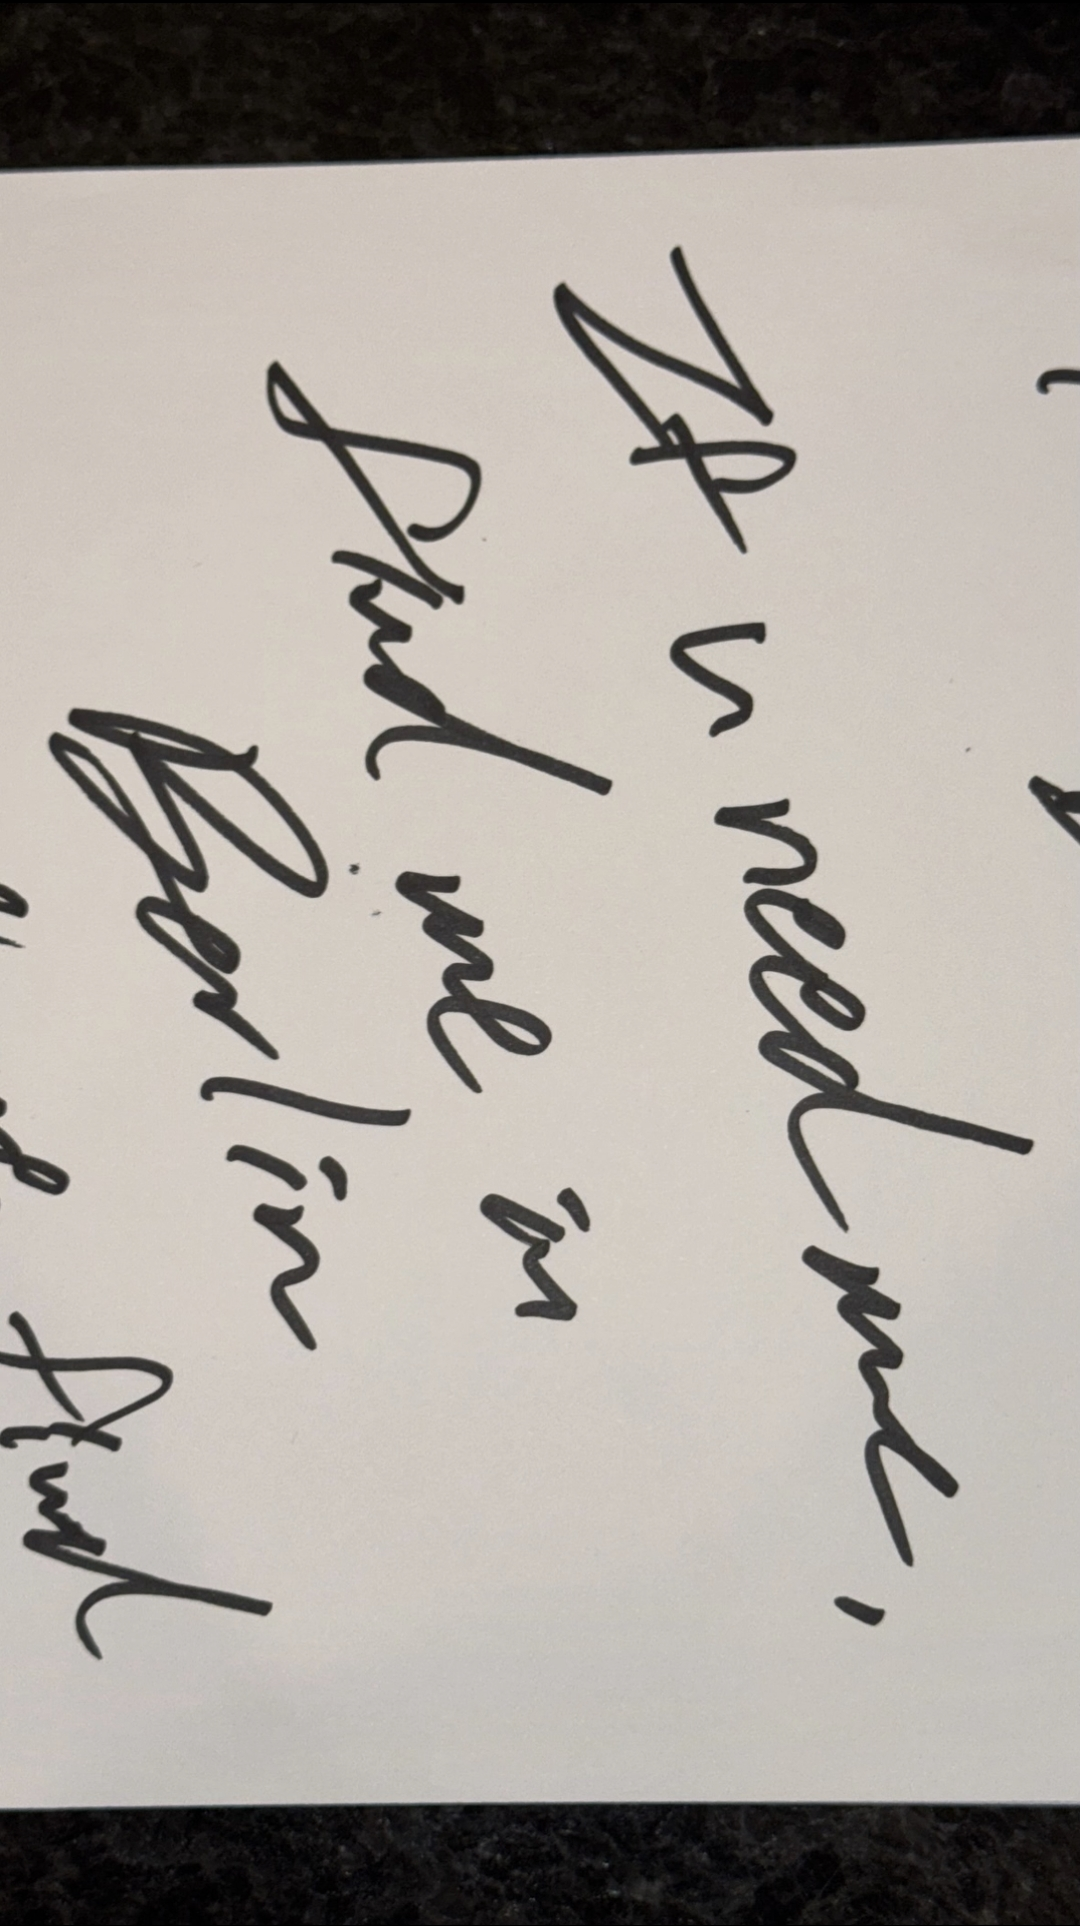 If u need me,
find me in
Berlin
find